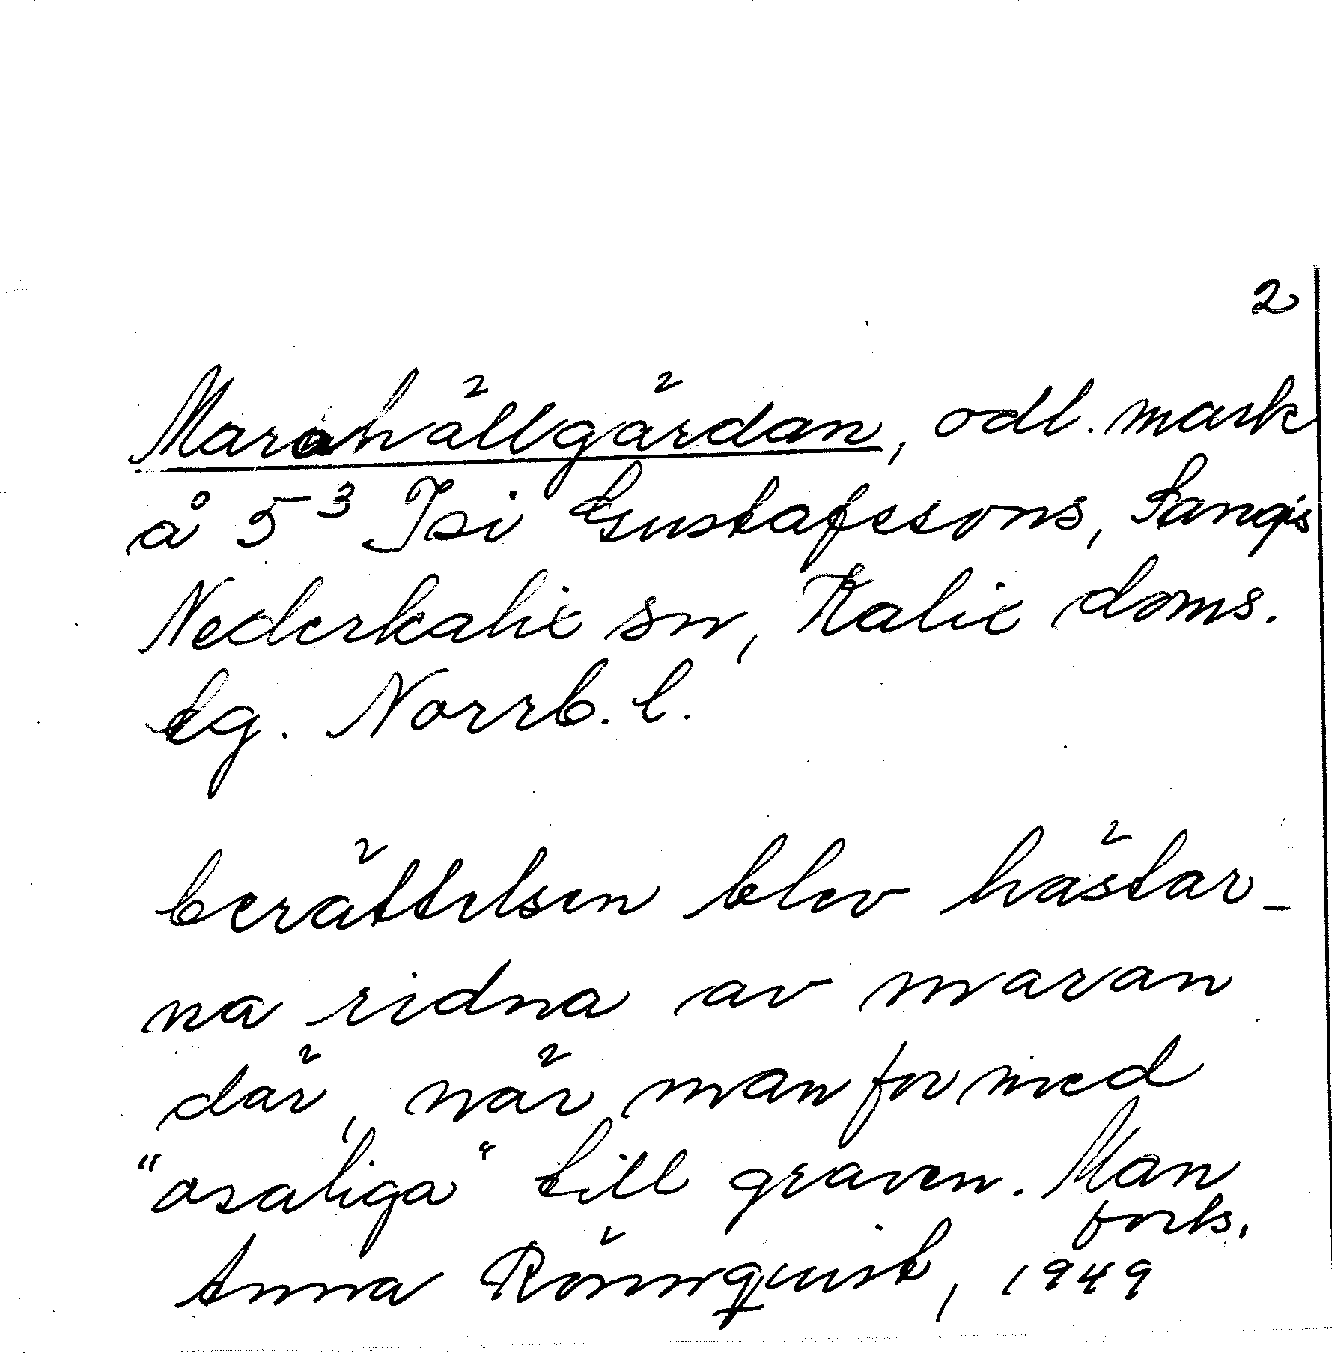 2
Marahällgärdan, odl. mark
å 5³ Isi Gustafssons, Sangis
Nederkalix sn, Kalix doms.
sg. Norrb. l.
berättelsen blev hästar-
na ridna av maran
där, när man for med
"osaliga" till graven. Man
forts.
Anna Rönnquist, 1949